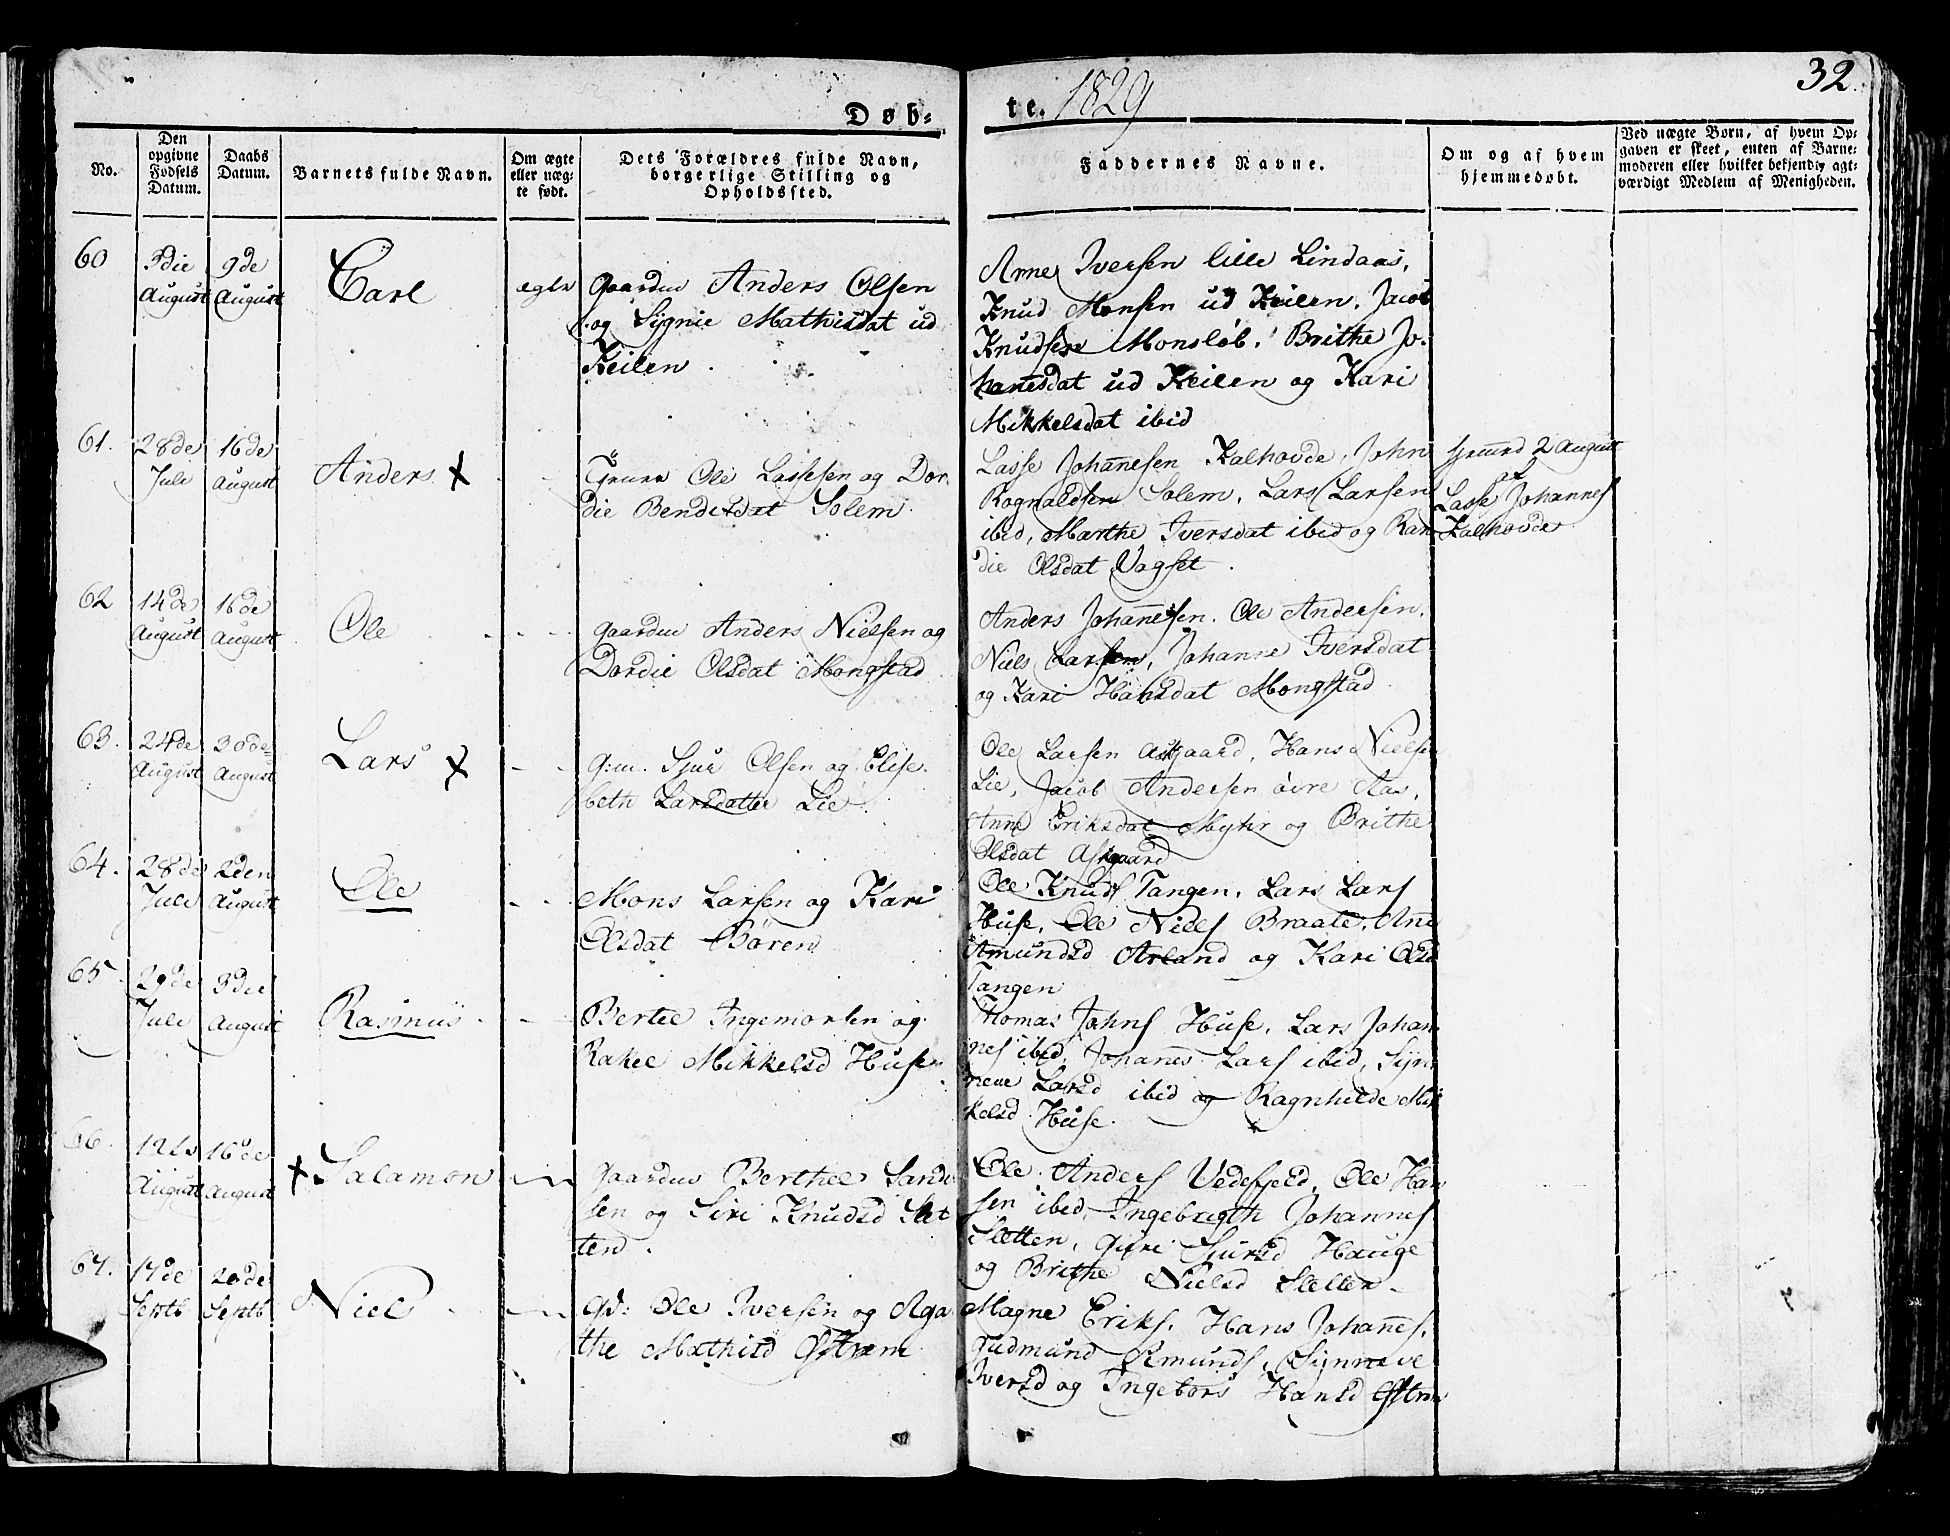 32
Døb-
te. 1829
No.
Den opgivne Fødsels Datum.
Daabs Datum.
Barnets fulde Navn.
Om ægte eller uægte født.
Dets Forældres fulde Navn, borgerlige Stilling og Opholdssted.
Faddernes Navne.
Om og af hvem hjemmedøbt.
Ved uægte Børn, af hvem Opgaven er skeet, enten af Barnemoderen eller hvilket bekjendtv agtværdigt Medlem af Menigheden.
60
3die August
9de August
Carl
ægte
Anders Olsen
og Sygnie Mathisdat ud
Keilen.
Arne Iversen lille Lindaas,
Knud Monsen ud Keilen, Jacob
Knudsen Monsløb, Brithe Jo-
hannesdat ud Keilen og Kari
Mikkelsdat ibid
61.
28de Juli
16de August
Anders
Ole Lassesen og Dor
die Bendixdat Solem.
Lasse Johannesen Kalhovde, John
Rognaldsen Solem, Lars Larsen
ibid, Marthe Iversdat ibid og Ran
die Olsdat Vagset.
2 August
af
Lasse Johannes
Kalhovde
62
14de August
16de August
Ole
Anders Nielsen og
Dordie Olsdat Mongstad
Anders Johannesen. Ole Andersen.
Niels Larsen, Johanne Iversdat
og Kari Hansdat Mongstad
63.
24de August
30de August
Lars
G:m. Sjur Olsen og Elise-
beth Larsdatter Lie
Ole Larsen Askaard, Hans Nielsen
Lie, Jacob Andersen øvre Aas,
Anne Eriksdat Myhr og Brithe
Olsdat Askaard
64.
28de Juli
2den August
Ole
Mons Larsen og Kari
Olsdat Børen
Ole Knuds Tangen, Lars Lars
Huse, Ole Niels Braate, Ane
Amundsd Arland og Kari Olsd
Tangen
65.
29de Juli
3die August
Rasmus
Bertel Ingemorten og
Rakel Mikkelsd Huse
Thomas Johns Huse, Lars Johan
nes ibid, Johanes Lars ibid, Syn
neve Larsd ibid og Ragnhilde Mik
kelsd Huse.
66.
August
16de August
Salamon
Berthel Sande
sen og Siri Knudsd Slet
ten.
Ole Anders Vedefjeld, Ole Han
sen ibid, Ingebrigth Johannes
Sletten, Guri Sjursd Hauge
og Brithe Nielsd Sletten
67.
17de Septb
20de Septb
Niels
Gd: Ole Iversen og Aga
the Mathisd
Magne Eriks, Hans Johannes,
Gudmund Amunds, Synneve
Iversd og Ingebor Hansd